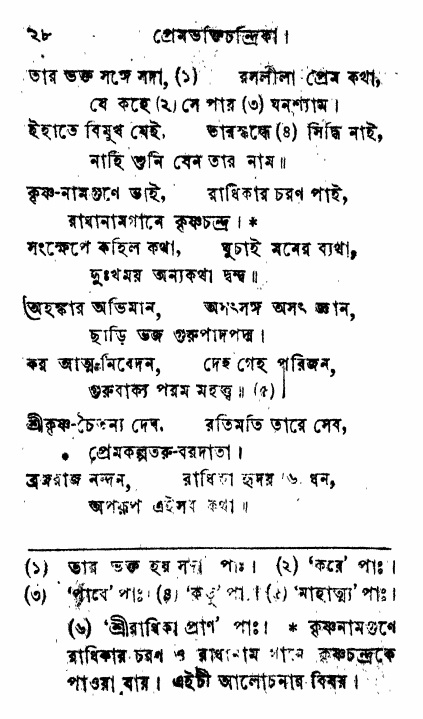 ২৮ প্রেমভক্তিচন্দ্রিকা।
তার ভক্ত সঙ্গে সদা, (১) রসলীলা প্রেম কথা,
যে কহে (২) সে পায় (৩) ঘনশ্যাম।
ইহাতে বিমুখ যেই, তারকভে (৪) সিদ্ধি নাই,
নাহি শুনি যেন তার নাম॥
কৃষ্ণ-নামগুণে ভাই, রাধিকার চরণ পাই,
রাধানামগানে কৃষ্ণচন্দ্র। *
সংক্ষেপে কহিল কথা, ঘুচাই মনের ব্যথা,
দুঃখময় অন্যকথা দ্বন্দ্ব॥
অহঙ্কার অভিমান, অসৎসঙ্গ অসৎ জ্ঞান,
ছাড়ি ভজ গুরুপাদপদ্ম।
কর আত্মনিবেদন, দেহ গেহ পরিজন,
গুরুবাক্য পরম মহত্ত্ব॥ (৫)
শ্রীকৃষ্ণ-চৈতন্য দেব, রতিমতি তারে সেব,
প্রেমকল্পতরু-বরদাতা।
ব্রজরাজ নন্দন, রাধিকা হৃদয় ৬ ধন,
অপরূপ এইসব কথা॥
(১) তার ভক্ত হয় সদা পাঃ। (২) ‘করে’ পাঃ।
(৩) ‘পাবে’ পাঃ। (৪) ‘কভু’ পা.। (৫) ‘মাহাত্ম্য’ পাঃ।
(৬) ‘শ্রীরাধিকা প্রাণ’ পাঃ। * কৃষ্ণনামগুণে
রাধিকার চরণ ও রাধানাম গানে কৃষ্ণচন্দ্রকে
পাওয়া যায়। এইটী আলোচনার বিষয়।